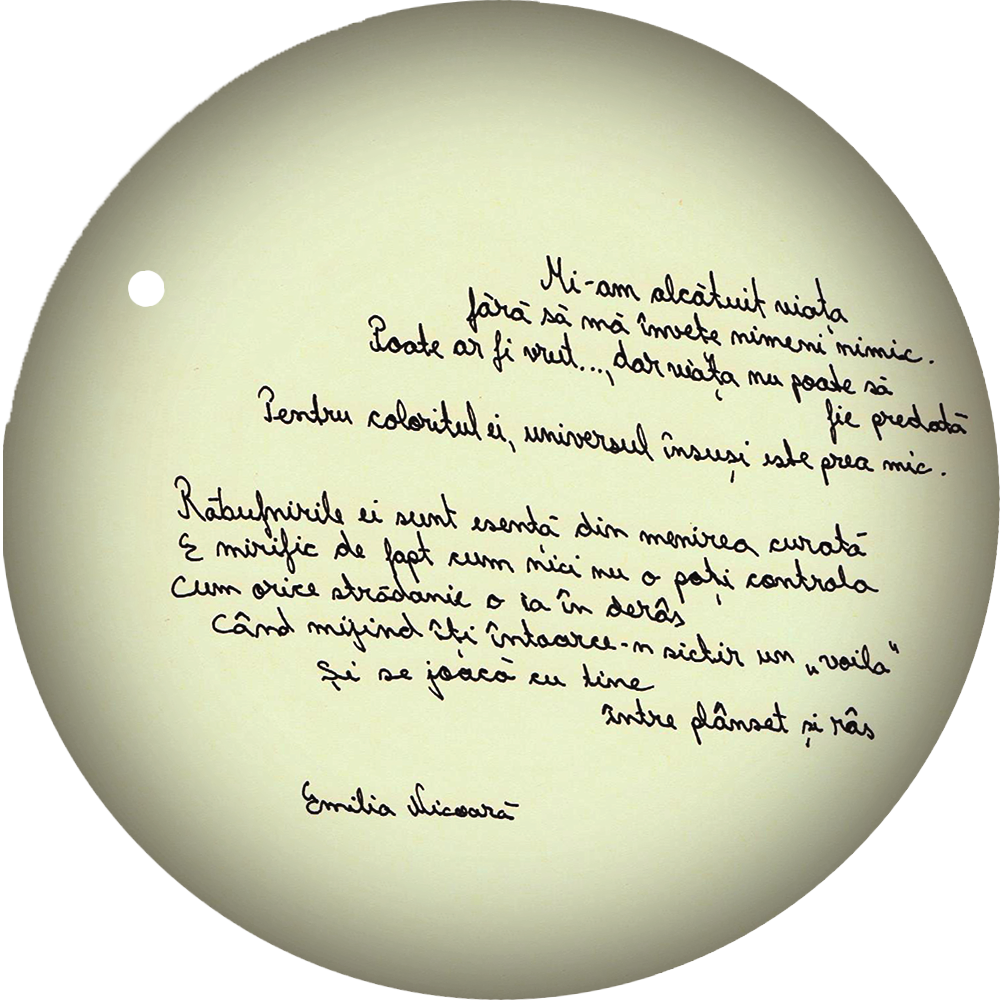 Mi-am alcătuit viața
fără să mă învețe nimeni nimic.
Poate ar fi vrut..., dar viața nu poate să
fie predată
Pentru coloritul ei, universul însuși este prea mic.
Răbufnirile ei sunt esență din menirea curată
E mirific de fapt cum nici nu o poți controla
Cum orice strădanie o ia în derâs
Când mijind îți întoarce-n sictir un „voila“
Și se joacă cu tine
între plânset și râs
Emilia Nicoară